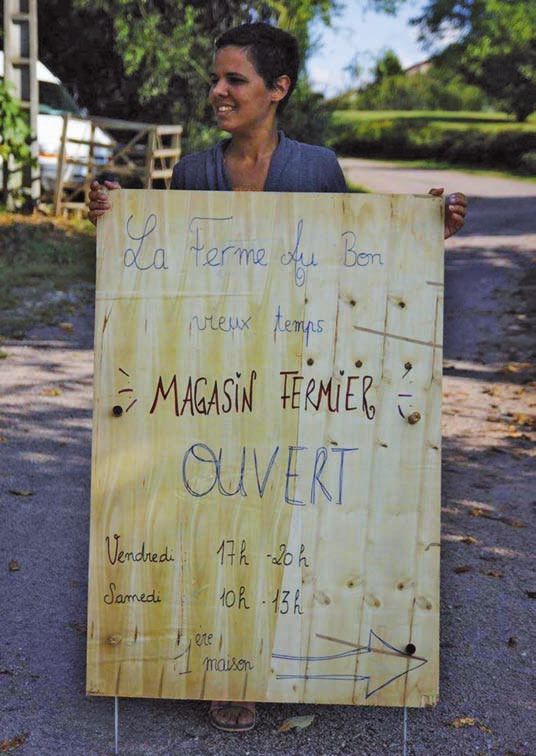 La Ferme Au Bon
vieux temps
MAGASIN FERMIER
OUVERT
Vendredi : 17h - 20h
Samedi : 10h - 13h
1ère maison